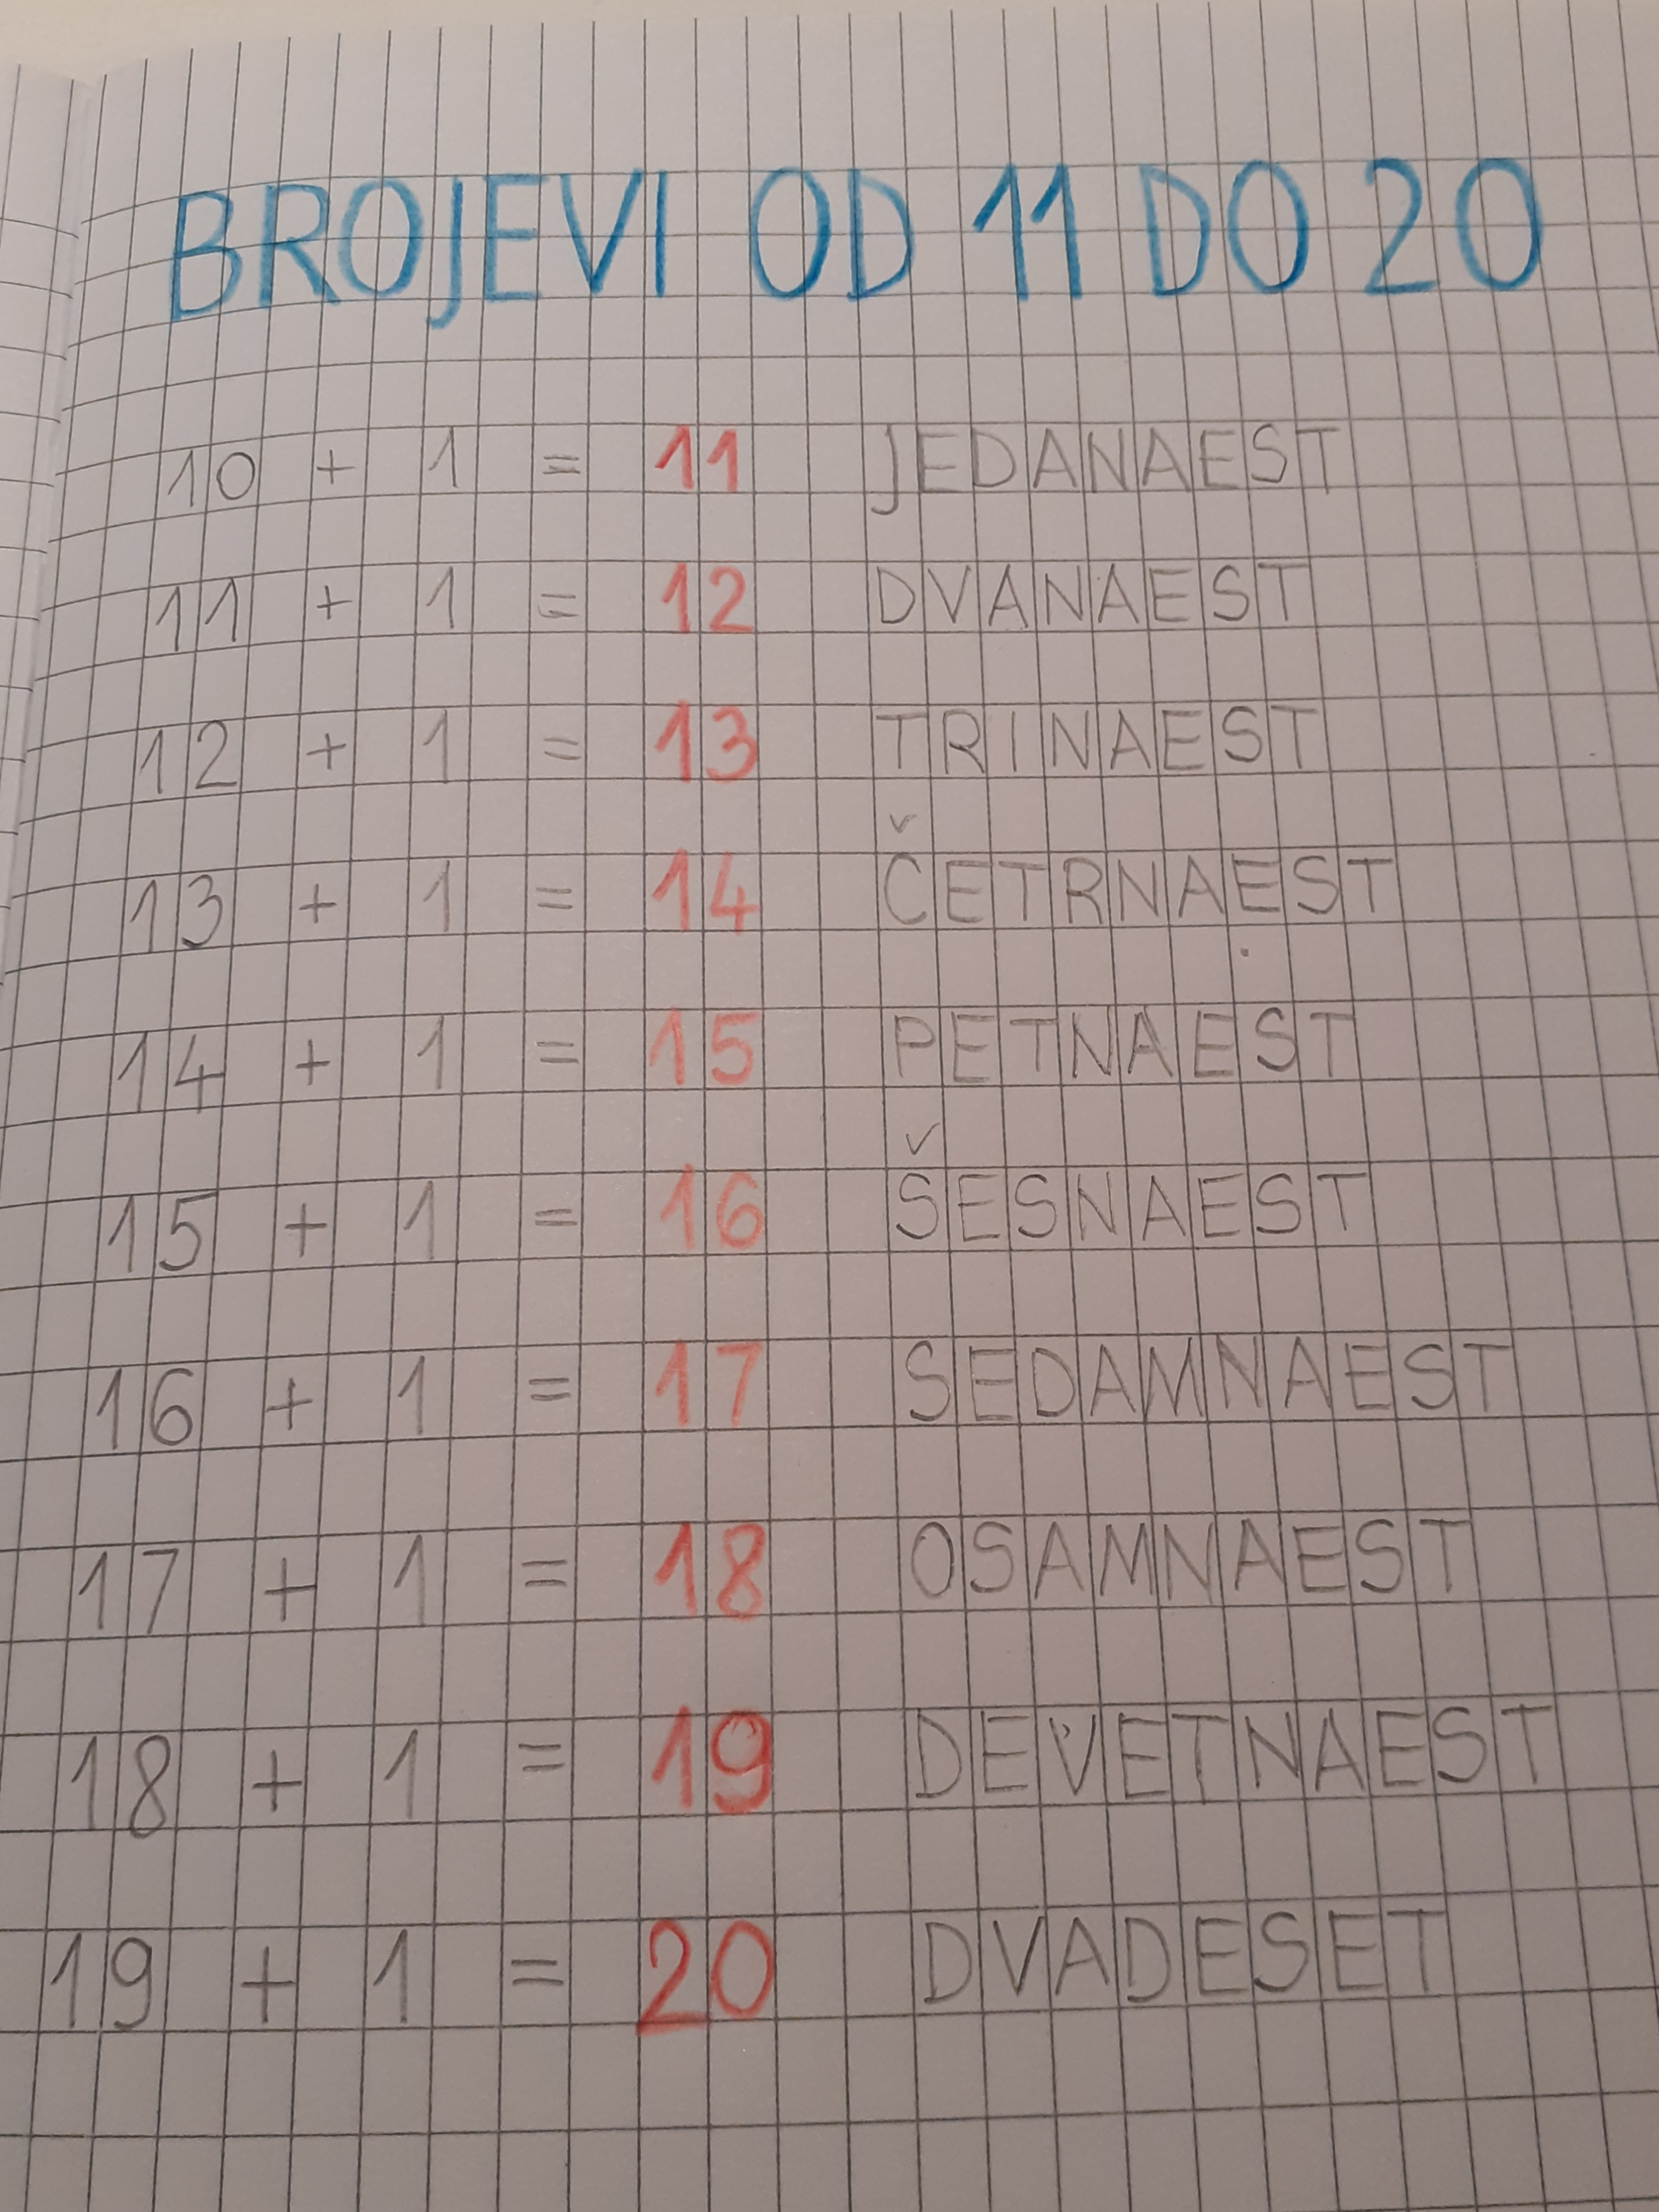 BROJEVI OD 11 DO 20
10 + 1 = 11 JEDANAEST
11 + 1 = 12 DVANAEST
12 + 1 = 13 TRINAEST
13 + 1 = 14 ČETRNAEST
14 + 1 = 15 PETNAEST
15 + 1 = 16 ŠESNAEST
16 + 1 = 17 SEDAMNAEST
17 + 1 = 18 OSAMNAEST
18 + 1 = 19 DEVETNAEST
19 + 1 = 20 DVADESET